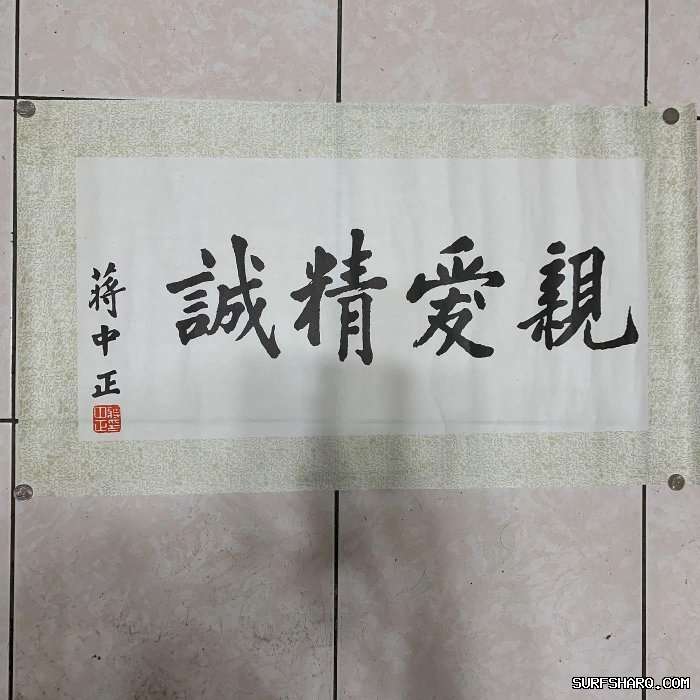 親愛精誠
蔣中正
SURFSHARQ.COM